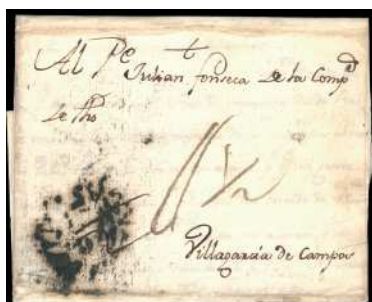 Al Pe Julian fonseca De la Compa
De Jhs
Villagarcia de Campos